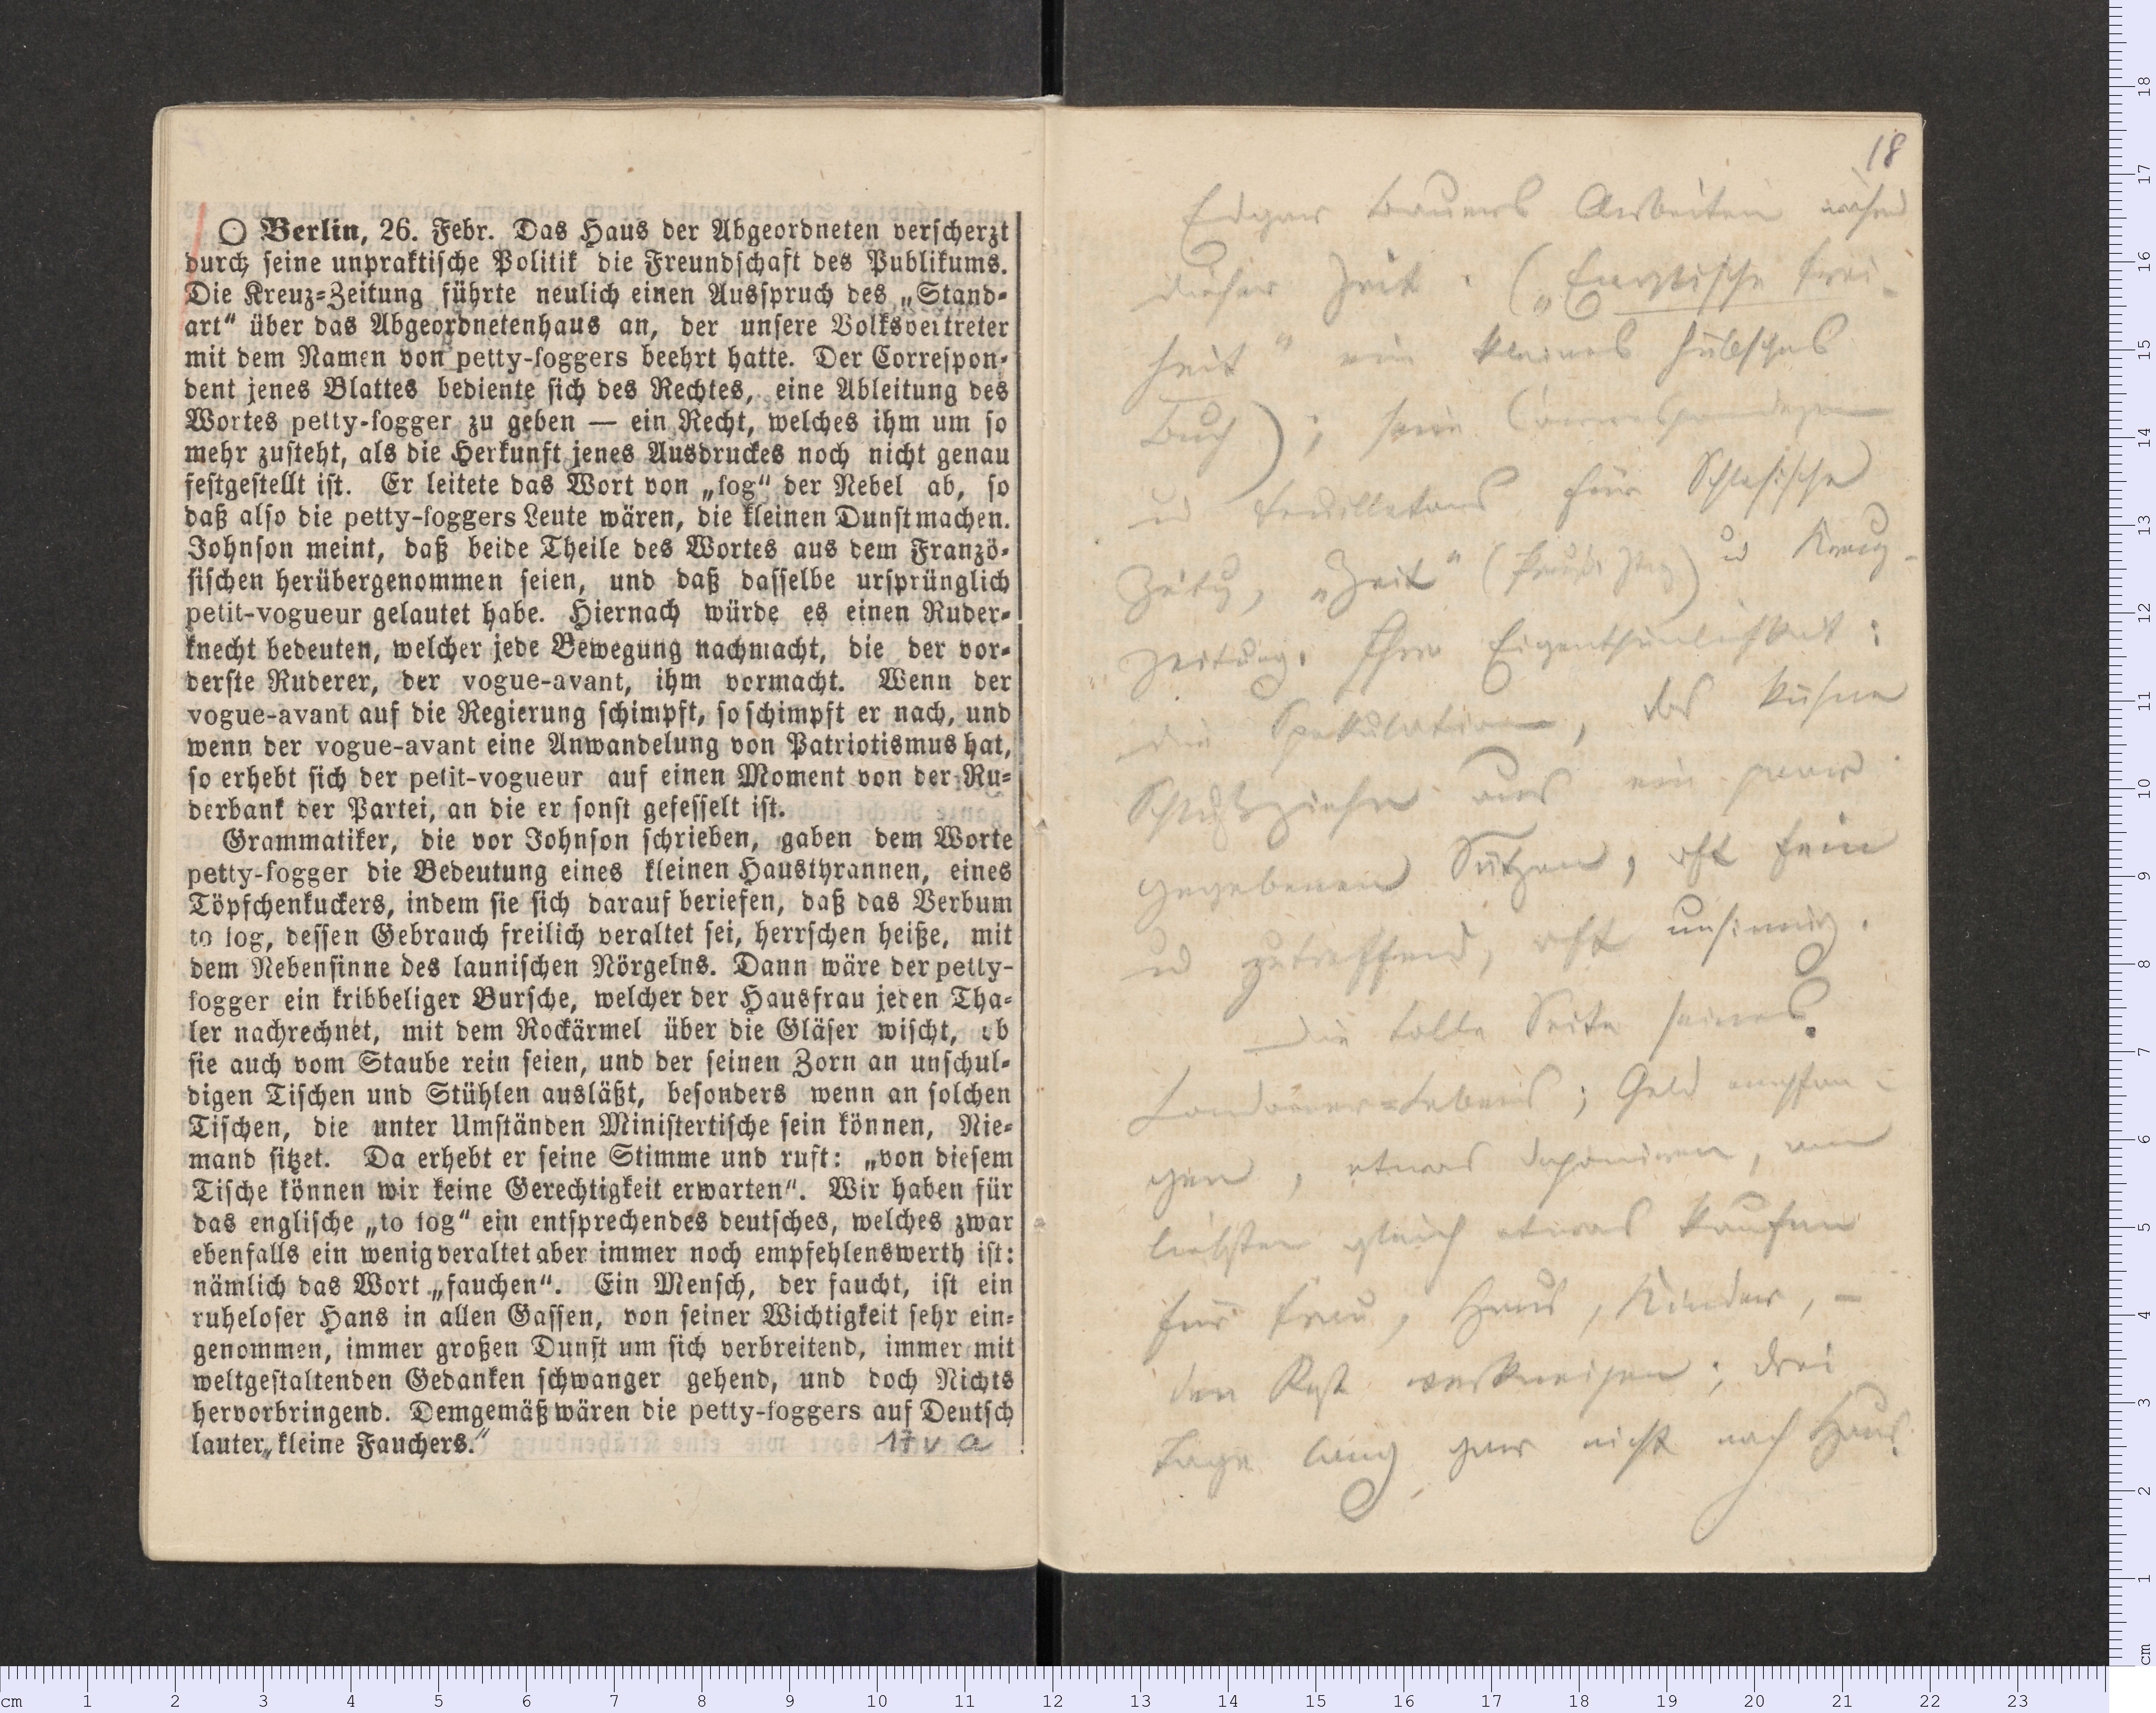 ○ Berlin, 26. Febr. Das Haus der Abgeordneten verscherzt
durch seine unpraktische Politik die Freundschaft des Publikums.
Die Kreuz-Zeitung führte neulich einen Ausspruch des „Stand-
art“ über das Abgeordnetenhaus an, der unsere Volksvertreter
mit dem Namen von petty-foggers beehrt hatte. Der Correspon-
dent jenes Blattes bediente sich des Rechtes, eine Ableitung des
Wortes petty-fogger zu geben — ein Recht, welches ihm um so
mehr zusteht, als die Herkunft jenes Ausdruckes noch nicht genau
festgestellt ist. Er leitete das Wort von „fog“ der Nebel ab, so
daß also die petty-foggers Leute wären, die kleinen Dunst machen.
Johnson meint, daß beide Theile des Wortes aus dem Franzö-
sischen herübergenommen seien, und daß dasselbe ursprünglich
petit-vogueur gelautet habe. Hiernach würde es einen Ruder-
knecht bedeuten, welcher jede Bewegung nachmacht, die der vor-
derste Ruderer, der vogue-avant, ihm vormacht. Wenn der
vogue-avant auf die Regierung schimpft, so schimpft er nach, und
wenn der vogue-avant eine Anwandelung von Patriotismus hat,
so erhebt sich der petit-vogueur auf einen Moment von der Ru-
derbank der Partei, an die er sonst gefesselt ist.
Grammatiker, die vor Johnson schrieben, gaben dem Worte
petty-fogger die Bedeutung eines kleinen Haustyrannen, eines
Töpfchenkuckers, indem sie sich darauf beriefen, daß das Verbum
to fog, dessen Gebrauch freilich veraltet sei, herrschen heiße, mit
dem Nebensinne des launischen Nörgelns. Dann wäre der petty-
fogger ein kribbeliger Bursche, welcher der Hausfrau jeden Tha-
ler nachrechnet, mit dem Rockärmel über die Gläser wischt, ob
sie auch vom Staube rein seien, und der seinen Zorn an unschul-
digen Tischen und Stühlen ausläßt, besonders wenn an solchen
Tischen, die unter Umständen Ministertische sein können, Nie-
mand sitzet. Da erhebt er seine Stimme und ruft: „von diesem
Tische können wir keine Gerechtigkeit erwarten“. Wir haben für
das englische „to fog“ ein entsprechendes deutsches, welches zwar
ebenfalls ein wenig veraltet aber immer noch empfehlenswerth ist:
nämlich das Wort „fauchen“. Ein Mensch, der faucht, ist ein
ruheloser Hans in allen Gassen, von seiner Wichtigkeit sehr ein-
genommen, immer großen Dunst um sich verbreitend, immer mit
weltgestaltenden Gedanken schwanger gehend, und doch Nichts
hervorbringend. Demgemäß wären die petty-foggers auf Deutsch
lauter „kleine Fauchers.“
17 v a
18
Edgar Bauers Arbeiten während
dieser Zeit. („Englische Frei-
heit“ ein kleines hübsches
Buch); seine Correspondenzen
und Feuilletons für Schlesische
Zeitung, „Zeit“ (Preuß. Ztg) und Kreuz-
zeitung. Ihre Eigenthümlichkeit:
die Spekulation, das kühne
Schlußziehn aus ein paar
gegebenen Sätzen, oft fein
und zutreffend, oft unsinnig.
Die tolle Seite seines
Londoner-Lebens; Geld empfan-
gen, etwas deponiren, am
liebsten gleich etwas kaufen
für Frau, Haus, Kinder, –
den Rest verkneipen; drei
Tage lang gar nicht nach Haus.